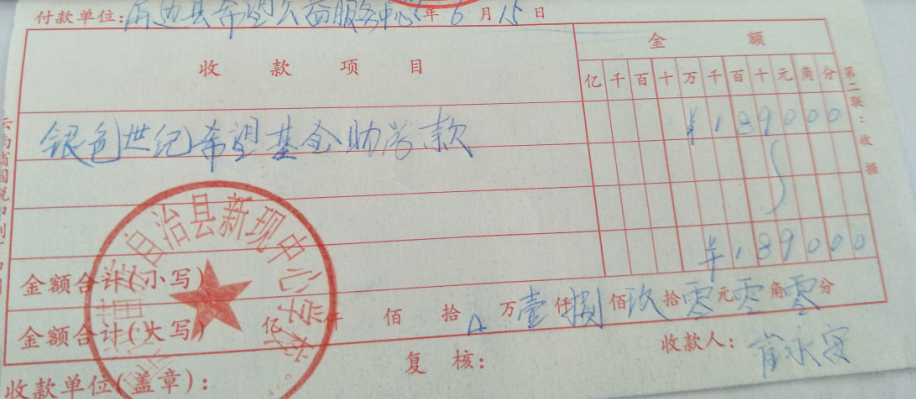 付款单位：屏边县希望公益服务中心 年 6 月 15 日
收款项目 金额
亿 千 百 十 万 千 百 十 元 角 分
第二联：收据
银色世纪希望基金助学款 ¥189000
金额合计(小写) ¥189000
金额合计(大写) 亿 仟 佰 拾 万 壹 仟 捌 佰 玖 拾 零 元 零 角 零 分
收款单位(盖章)： 复核： 收款人：
自治县新现中心学校